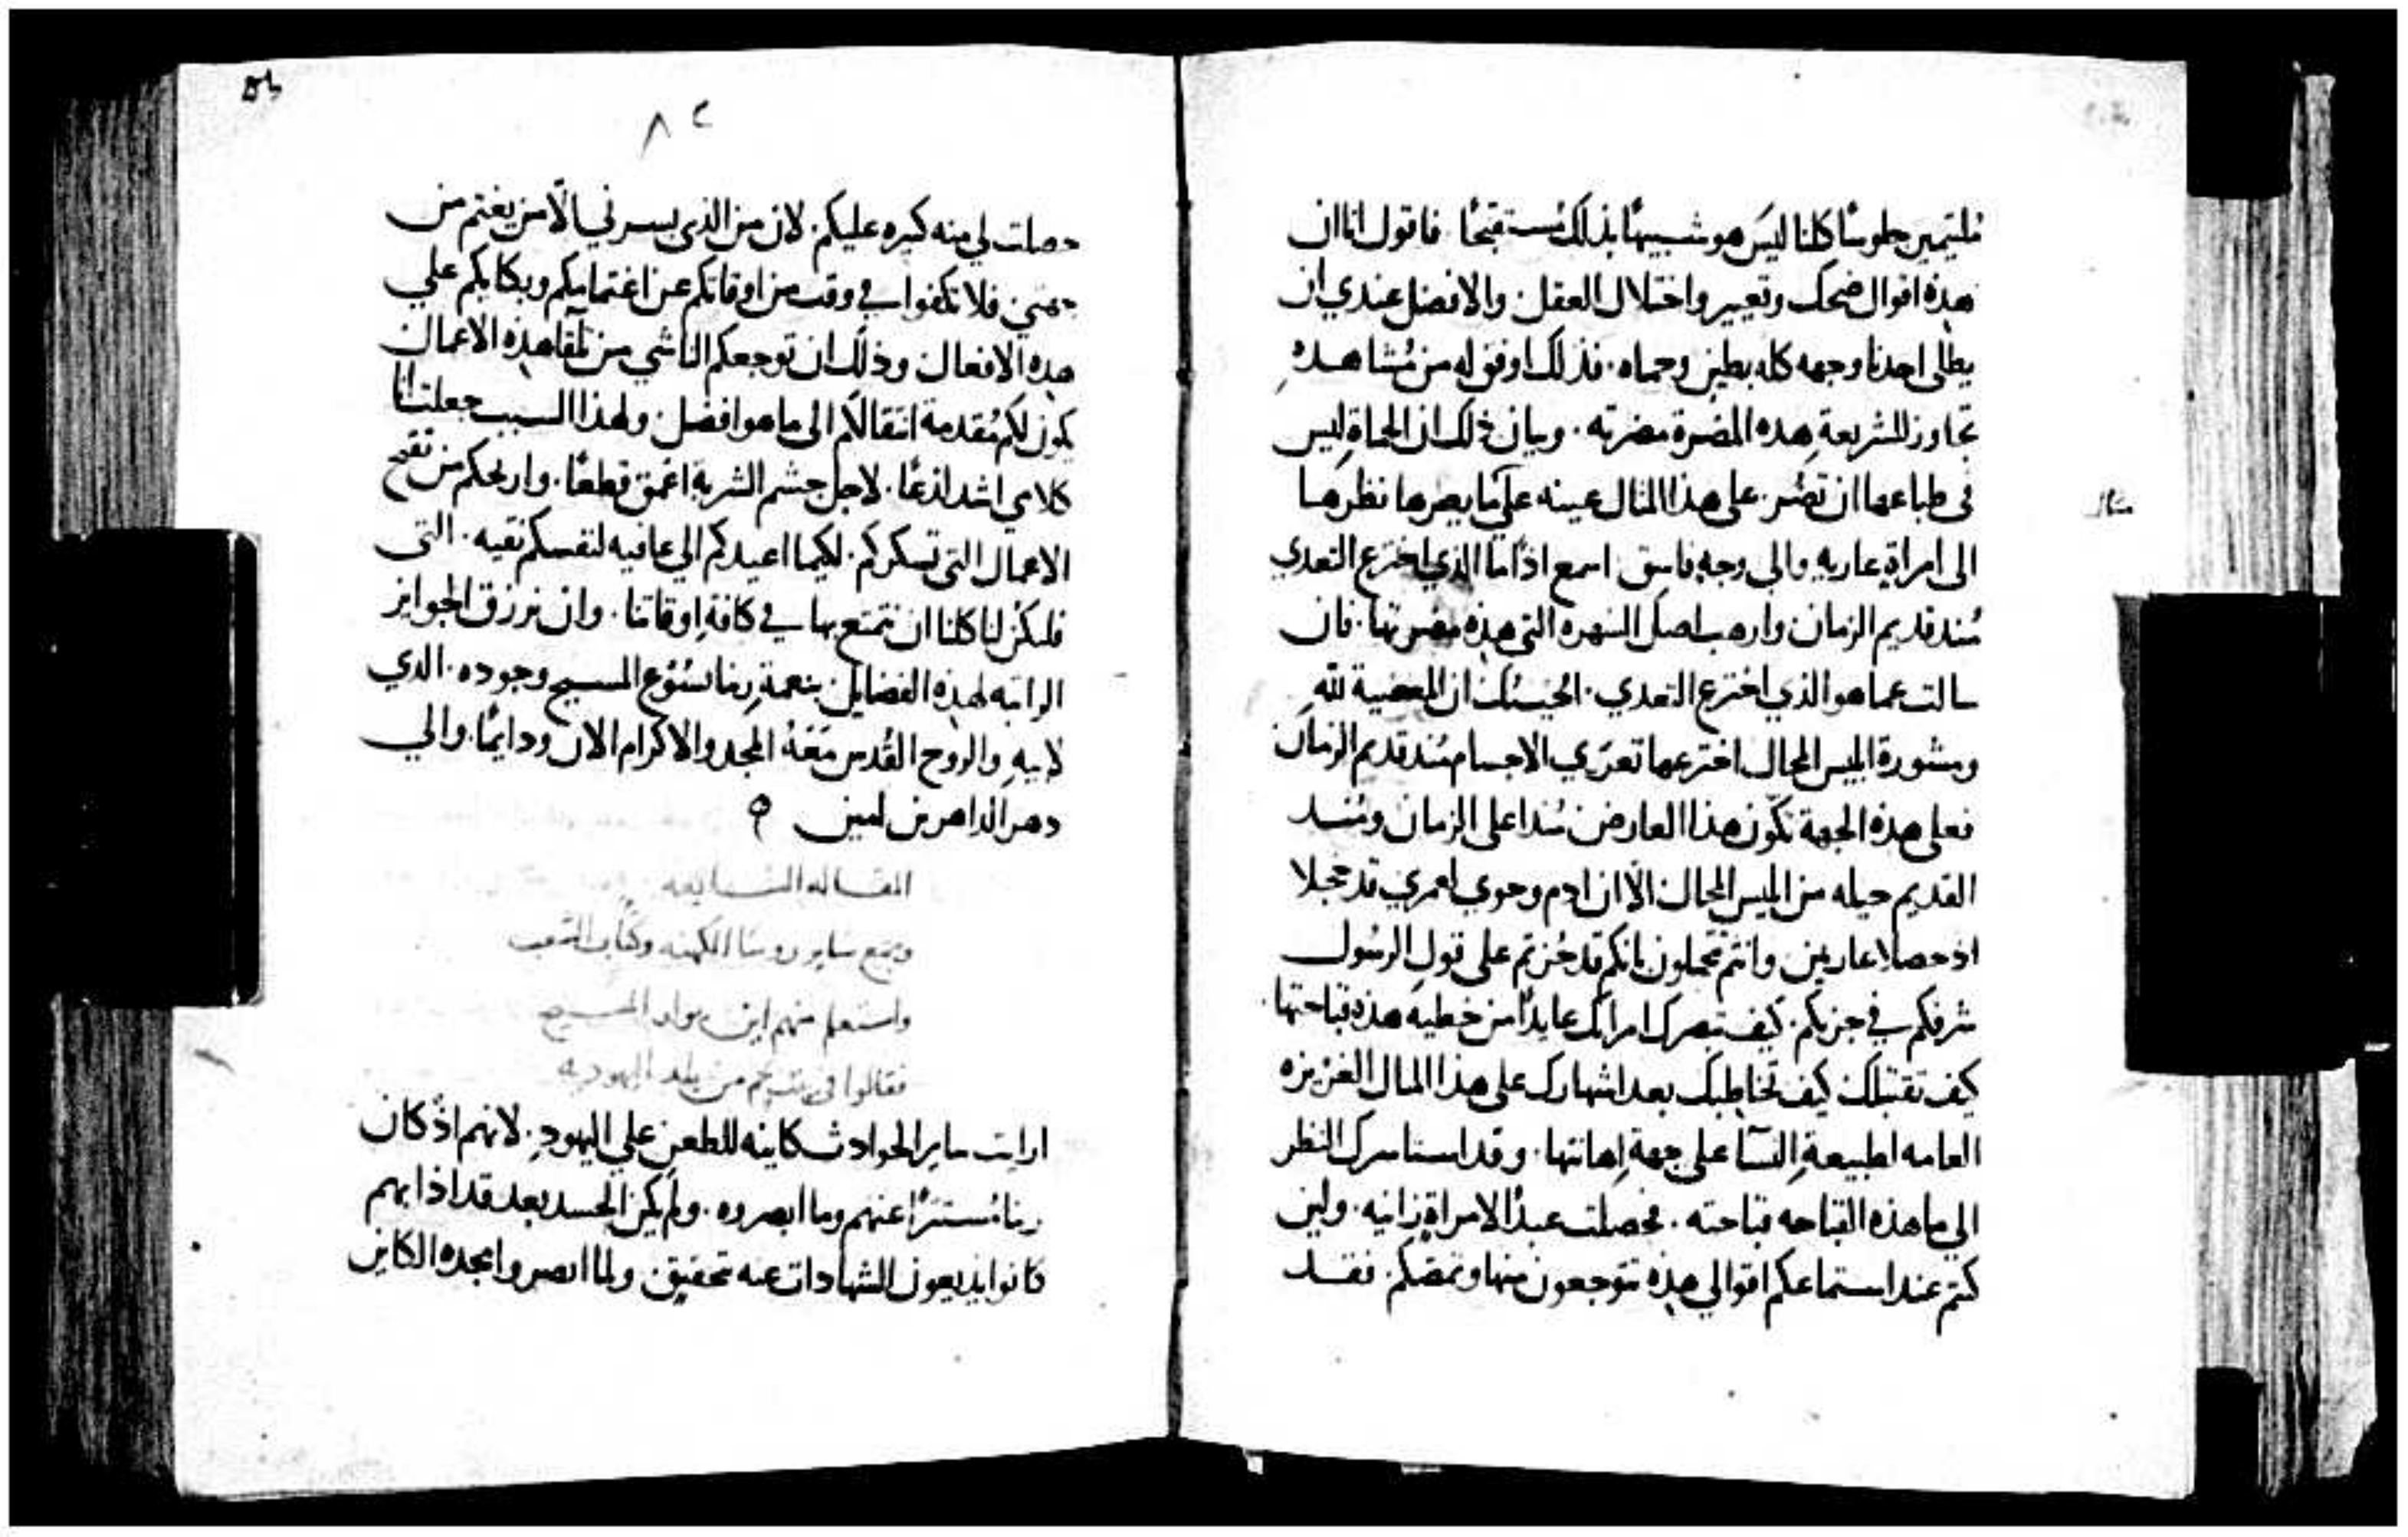 مثال
ملتيمين جلوسًا كلنا ليسَ هو شبيهًا بذلك مُستقبحًا فاقول انا ان
هذه اقوال ضحك وتعيير واختلال العقل والافضل عندي ان
يطلى احدنا وجهه كله بطين وحماه فذلك اوفق له من مُشاهده
تجاوز للشريعة هذه المضرة مضرته وبيان ذلك ان الحماة ليس
في طباعها ان تضُر على هذا المثال عينه على ما يضرها نظرها
الى امراةٍ عاريه والى وجهٍ فاسق اسمع اذًا ما الذي اخترع التعدي
مُند قديم الزمان وارهب اصل الشهره التي هذه مضرتها فان
سالت عما هو الذي اخترع التعدي اجبتك ان المعصية لله
ومشورة ابليس المحال اخترعها تعرّي الاجسام مُند قديم الزمان
فعلى هذه الجهة تكّون هذا العارض مُنداعلى الزمان ومُنـد
القديم حيله من ابليس المحال الّا ان ادم وحوي لعمري قد خجلا
اذ حصلا عاريين وانتم تحملون بانكم قد حُزتم على قول الرسُول
شرفكم في خزيكم كيف تبصرك امراتك عايدًا من خطيه هذه قباحتها
كيف تقتبلك كيف تخاطبك بعد اشهارك على هذا المثال الغزيزه
العامه لطبيعةِ النسَآ على جهة اِهانتها وقد استاسرك النظر
الى ما هذه القباحه قباحته فحصلت عبدًا لامراةٍ زانيه ولين
كنتم عند استماعكم اقوالي هذه تتوجعون منها وتمضكم فقـد
٨٢
حصلت لي منه كبيره عليكم لان من الذي يسرني الّا من يغتم من
جهتي فلا تكفوا في وقت من اوقاتكم عن اغتمامكم وبكايكم علي
هذه الافعال وذلك ان توجعكم الناشي من تلقا هذه الاعمال
يكون لكم مُقدمة انتقالكم الى ما هو افضل ولهذا السبب جعلت انا
كلامي اشد لذعًا لاجل جشم الشربة اعمق قطعًا واريحكم من تقيح
الاعمال التي تسكركم لكيما اعيدكم الي عافيه لنفسكم نقيه التى
فليكُن لنا كلنا ان نتمتع بها في كافةِ اوقاتنا وان نرزق الجوايز
الراتبه لهذه الفضايل بنعمةِ ربنا يسُوع المسيح وجوده الدي
لابيهِ والروح القُدس مَعَهُ المجد والاكرام الان ودايمًا والي
دهر الداهرين امين
المقــاله السابعه
وجمع ساير روسَا الكهنه وكتاب الشعب
واستعلم منهم اين يولد المسيح
فقالوا في بيت لحم من بلد اليهوديه
ارايت ساير الحوادث كاينه للطعن على اليهودِ لانهم اذ كان
ربنا مُستترًا عنهم وما ابصروه ولم يكن الحسد بعد قد اذابهم
كانوا يذيعون الشهادات عنه تحقيق ولما ابصروا مجده الكاين